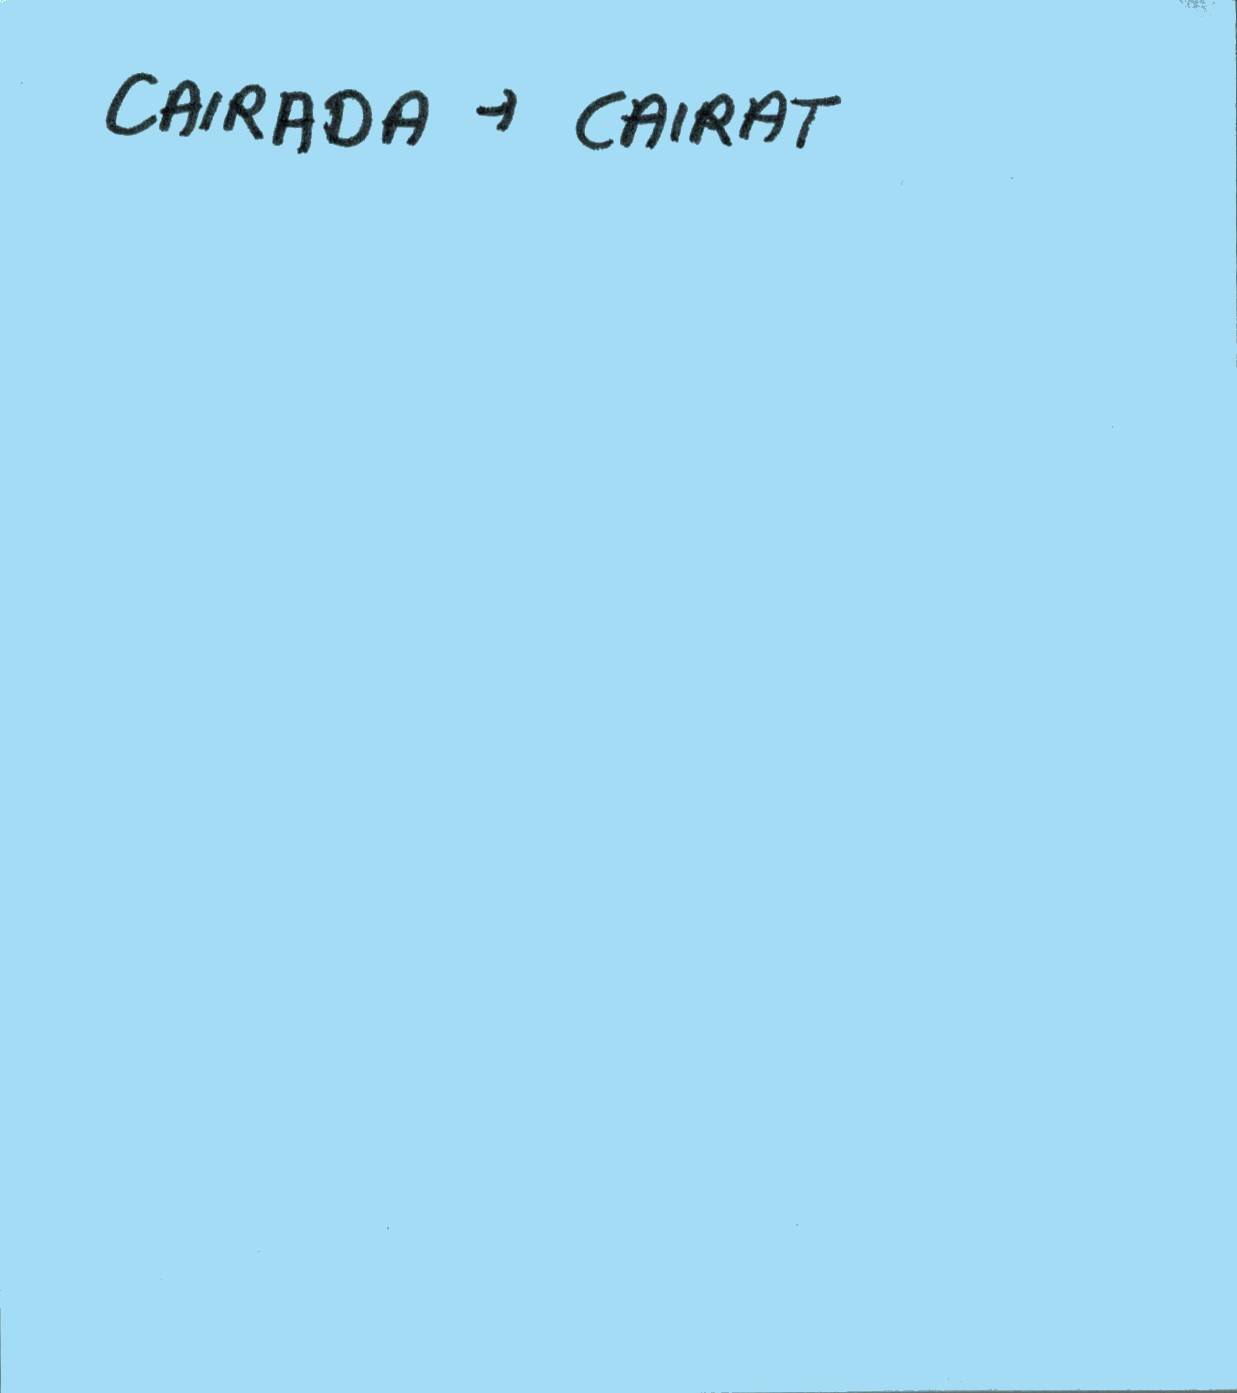 CAIRADA → CAIRAT